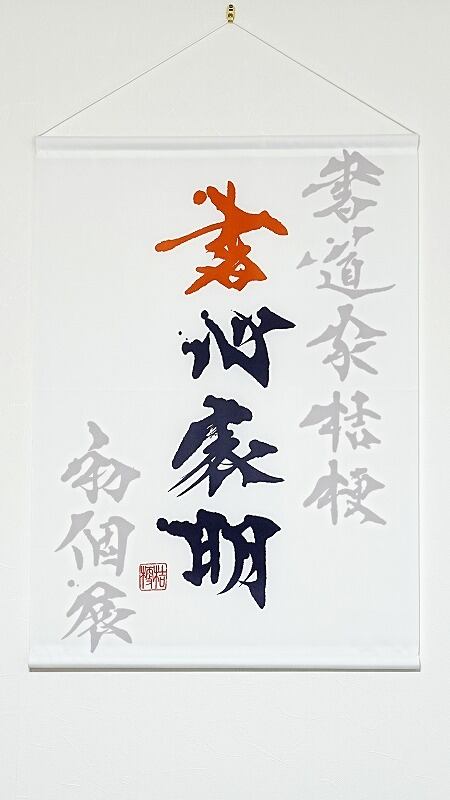 書道家桔梗
書心表明
初個展
桔梗